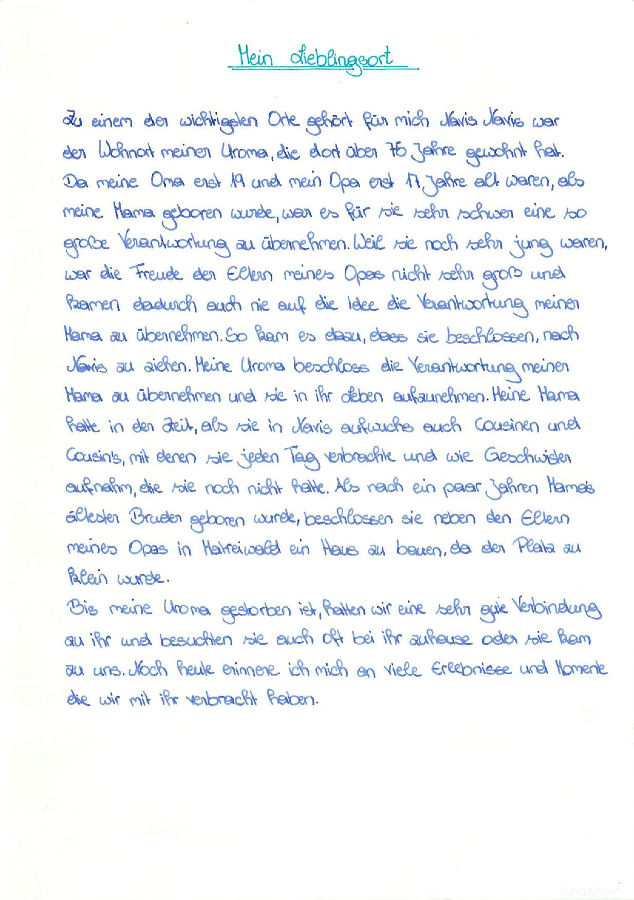 Mein Lieblingsort
Zu einem der wichtigsten Orte gehört für mich Navis Navis war
der Wohnort meiner Uroma, die dort über 76 Jahre gewohnt hat.
Da meine Oma erst 19 und mein Opa erst 17 Jahre alt waren, als
meine Mama geboren wurde, war es für sie sehr schwer eine so
große Verantwortung zu übernehmen. Weil sie noch sehr jung waren,
war die Freude der Eltern meines Opas nicht sehr groß und
kamen dadurch auch nie auf die Idee die Verantwortung meiner
Mama zu übernehmen. So kam es dazu, dass sie beschlossen, nach
Navis zu ziehen. Meine Uroma beschloss die Verantwortung meiner
Mama zu übernehmen und sie in ihr Leben aufzunehmen. Meine Mama
hatte in der Zeit, als sie in Navis aufwuchs auch Cousinen und
Cousin's, mit denen sie jeden Tag verbrachte und wie Geschwister
aufnahm, die sie noch nicht hatte. Als nach ein paar Jahren Mamas
ältester Bruder geboren wurde, beschlossen sie neben den Eltern
meines Opas in Matreiwald ein Haus zu bauen, da der Platz zu
klein wurde.
Bis meine Uroma gestorben ist, hatten wir eine sehr gute Verbindung
zu ihr und besuchten sie auch oft bei ihr zuhause oder sie kam
zu uns. Noch heute erinnere ich mich an viele Erlebnisse und Momente
die wir mit ihr verbracht haben.